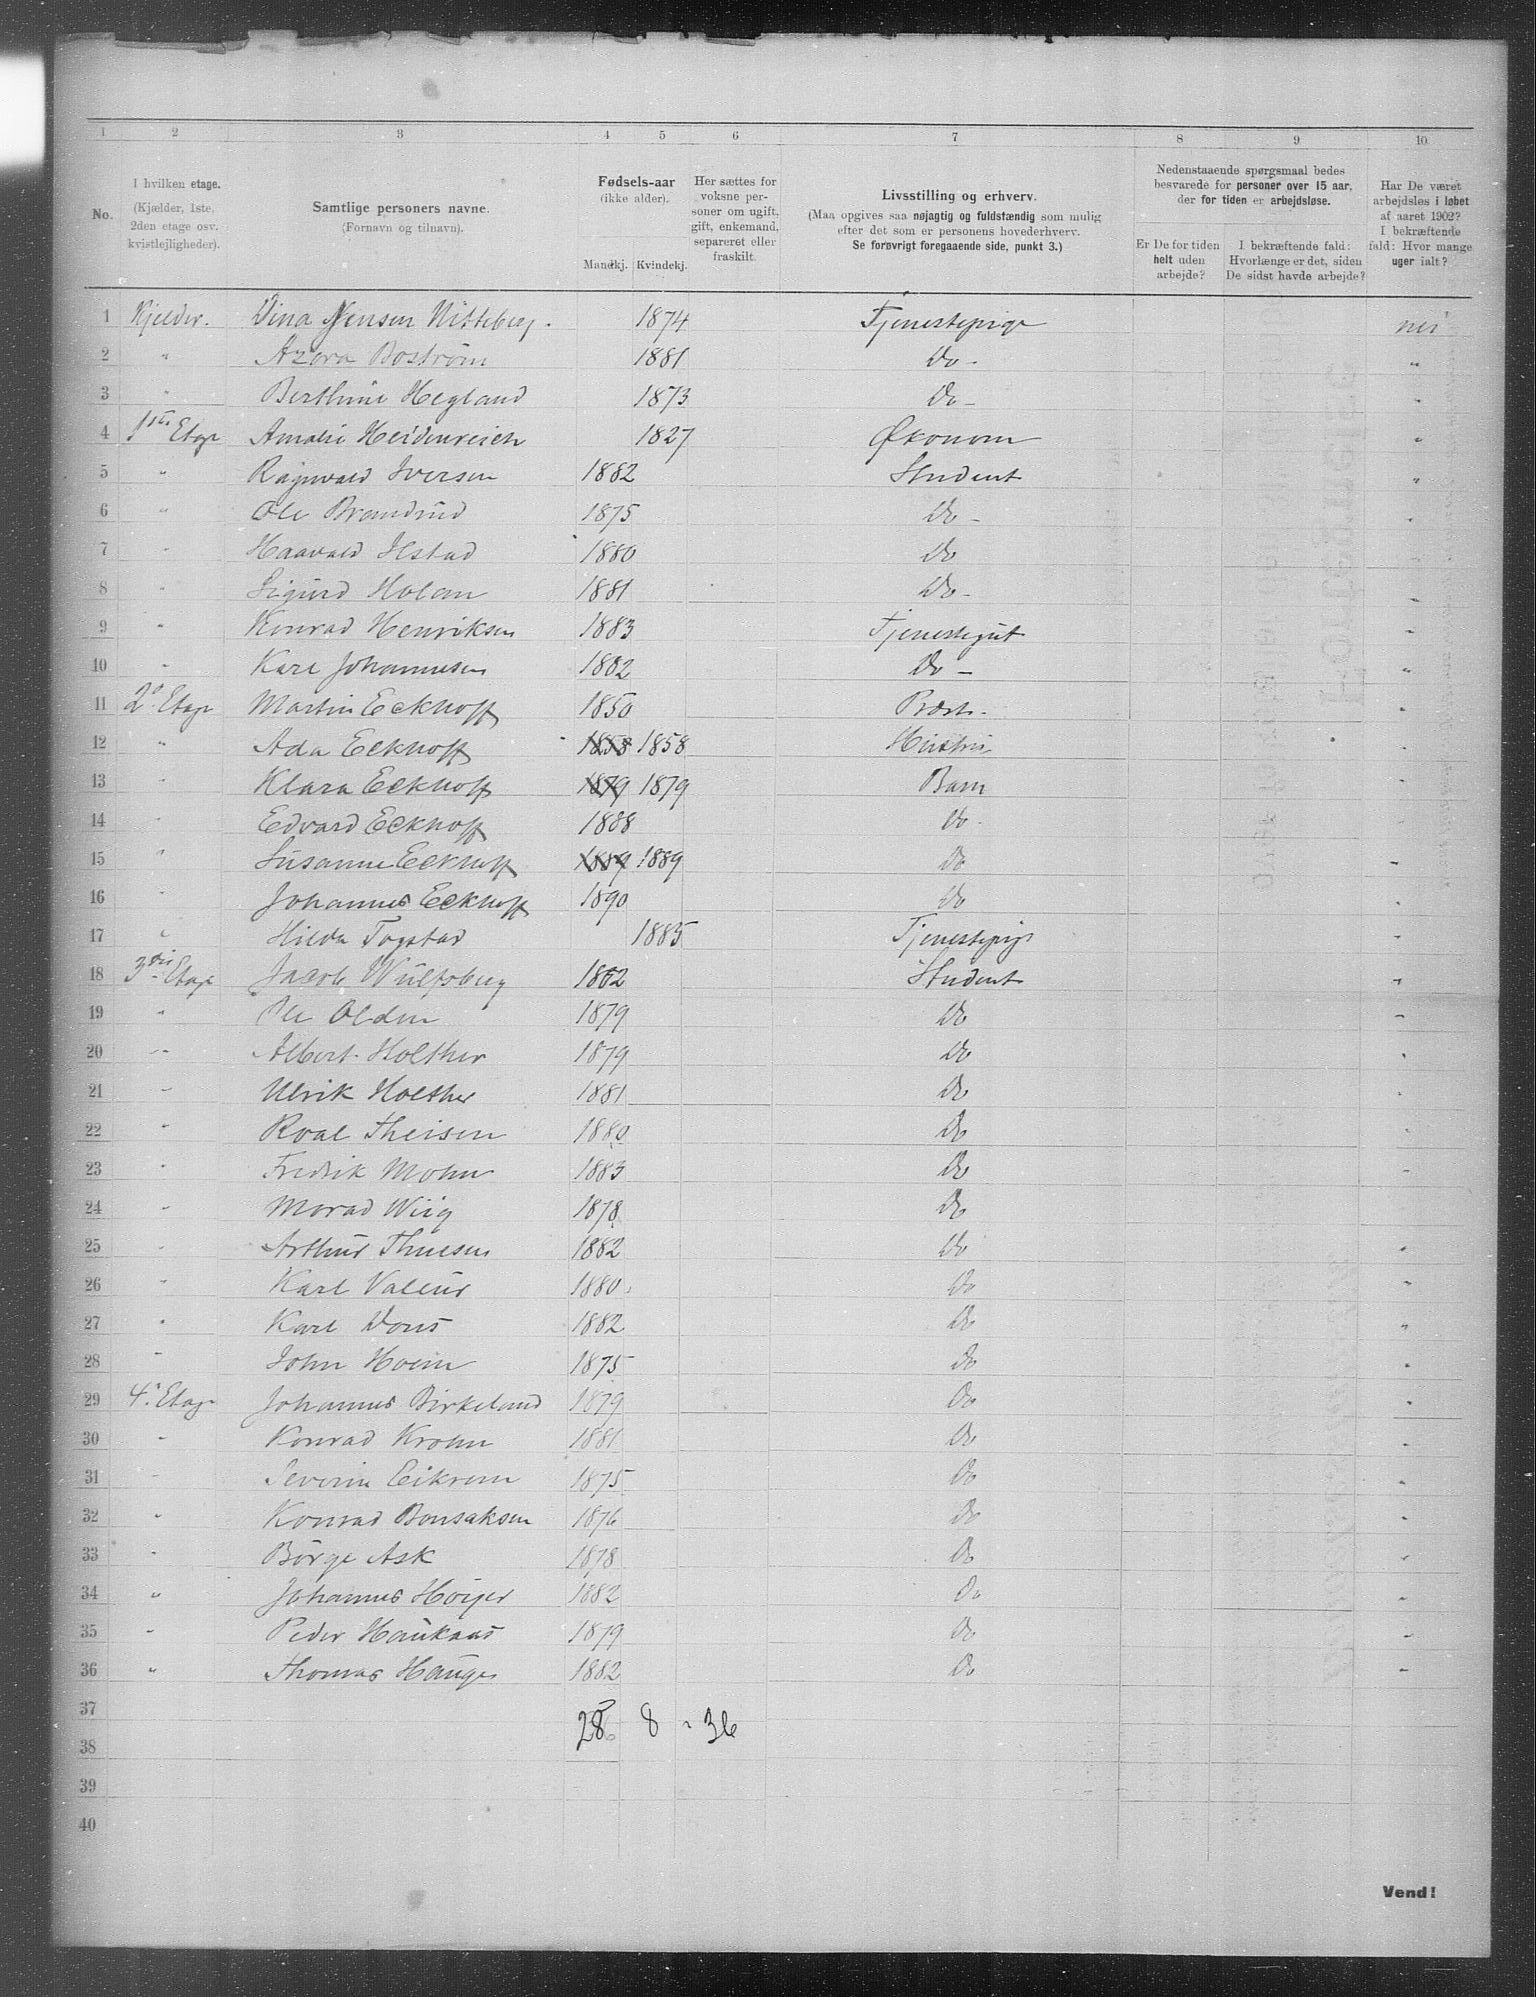 1 2 3 4 5 6 7 8 9 10
No.
I hvilken etage.
(Kjælder, 1ste,
2den etage osv.
kvistlejligheder).
Samtlige personers navne.
(Fornavn og tilnavn).
Fødsels-aar
(ikke alder).
Mandkj. Kvindekj.
Her sættes for
voksne per-
soner om ugift,
gift, enkemand,
separeret eller
fraskilt.
Livsstilling og erhverv.
(Maa opgives saa nøjagtig og fuldstændig som mulig
efter det som er personens hovederhverv.
Se forøvrigt foregaaende side, punkt 3.)
Nedenstaaende spørgsmaal bedes
besvarede for personer over 15 aar,
der for tiden er arbejdsløse.
Er De for tiden
helt uden
arbejde?
I bekræftende fald:
Hvorlænge er det, siden
De sidst havde arbejde?
Har De været
arbejdsløs i løbet
af aaret 1902?
I bekræftende
fald: Hvor mange
uger ialt?
1 Kjelder. Vina Jensen Nitteberg. 1874 Tjenestepige nei
2 " Azora Bostrøm 1881 Do - "
3 " Berthine Hegland 1873 Do - "
4 1ste Etage Amalie Heidenreich 1827 Økonom "
5 " Ragnvald Iversen 1882 Student "
6 " Ole Brandrud 1875 Do - "
7 " Haavald Ilstad 1880 Do "
8 " Sigurd Holan 1881 Do - "
9 " Konrad Henriksen 1883 Tjenestegut "
10 " Kare Johannesen 1882 Do - "
11 2. Etage Martin Eckhoff 1850 Præst - "
12 " Ada Eckhoff 1858 1858 Hustru "
13 " Klara Eckhoff 1879 1879 Barn "
14 " Edvard Eckhoff 1888 Do -
15 " Susanne Eckhoff 1889 1889 Do "
16 " Johannes Eckhoff 1890 Do "
17 " Hilda Togstad 1885 Tjenestepige "
18 3die Etage Jacob Wulfsberg 1882 Student "
19 " Ole Olden 1879 Do "
20 " Albert Holther 1879 Do "
21 " Ulrik Holther 1881 Do "
22 " Roal Theisen 1880 Do "
23 " Fredrik Mohn 1883 Do "
24 " Morad Wiig 1878 Do
25 " Arthur Thuesen 1882 Do "
26 " Karl Valeur 1880 Do "
27 " Karl Dons 1882 Do "
28 " John Hoem 1875 Do "
29 4. Etage Johannes Birkeland 1879 Do "
30 " Konrad Krohn 1881 Do "
31 " Severin Eikrem 1875 Do "
32 " Konrad Bonsaksen 1876 Do "
33 " Børge Ask 1878 Do "
34 " Johannes Høyer 1882 Do "
35 " Peder Haukaas 1879 Do "
36 " Thomas Hauge 1882 Do "
37
28 8 - 36
38
39
40
Vend!